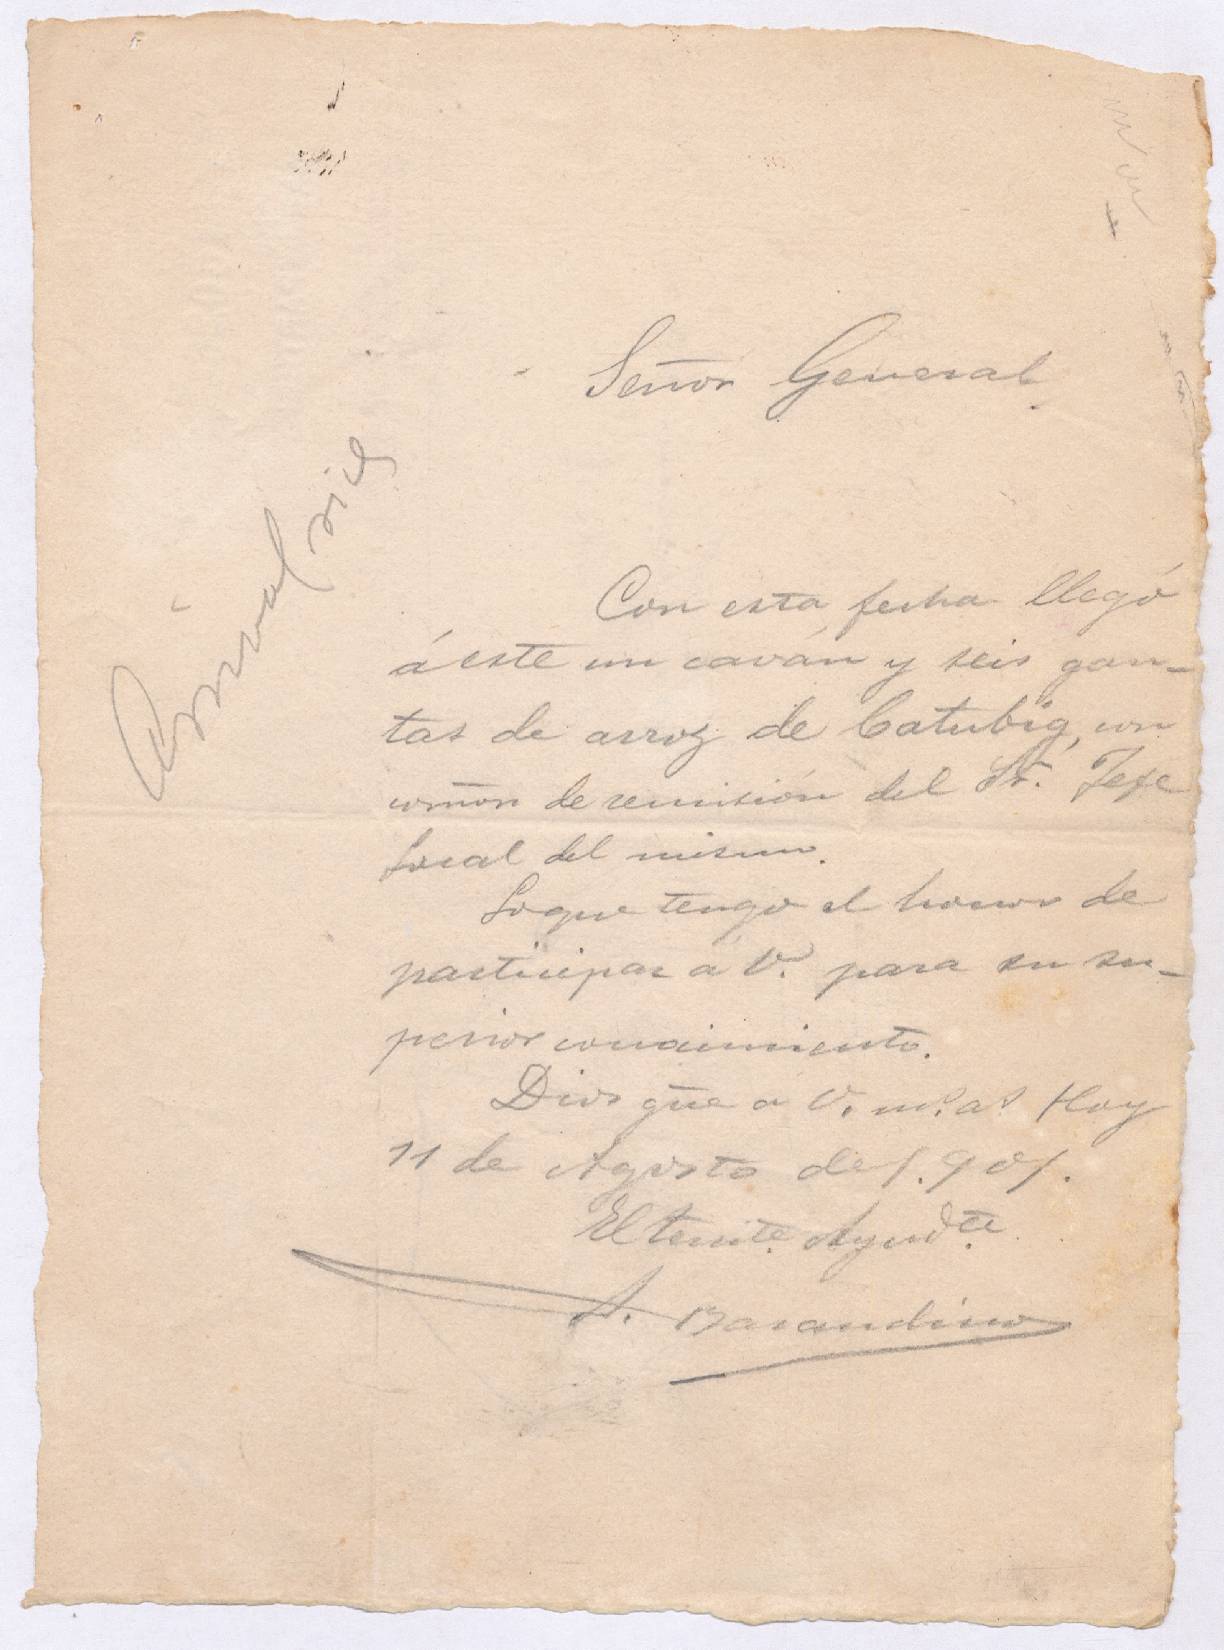 Señor General.
Arrival rice
Con esta fecha llegó
á este un caván y seis gan-
tas de arroz de Catubig, con
comón de remisión del Sr. Jefe
local del mismo.
Lo que tengo el honor de
participar a V. para su su-
perior conocimiento.
Dios gũe a V. ms. as. Hoy
11 de Agosto de 1.901.
El tenite. Ayudte.
A. Barandino